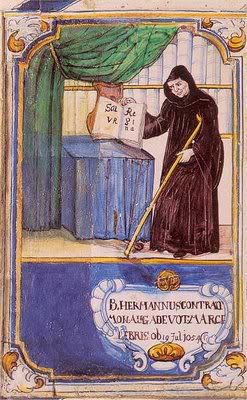 Sal
Re
gi
na
B. HERMANNUS CONTRACT
MON. AUG. A DEVOTE MAR CE
LEBRIS ob 19 Jul 1054